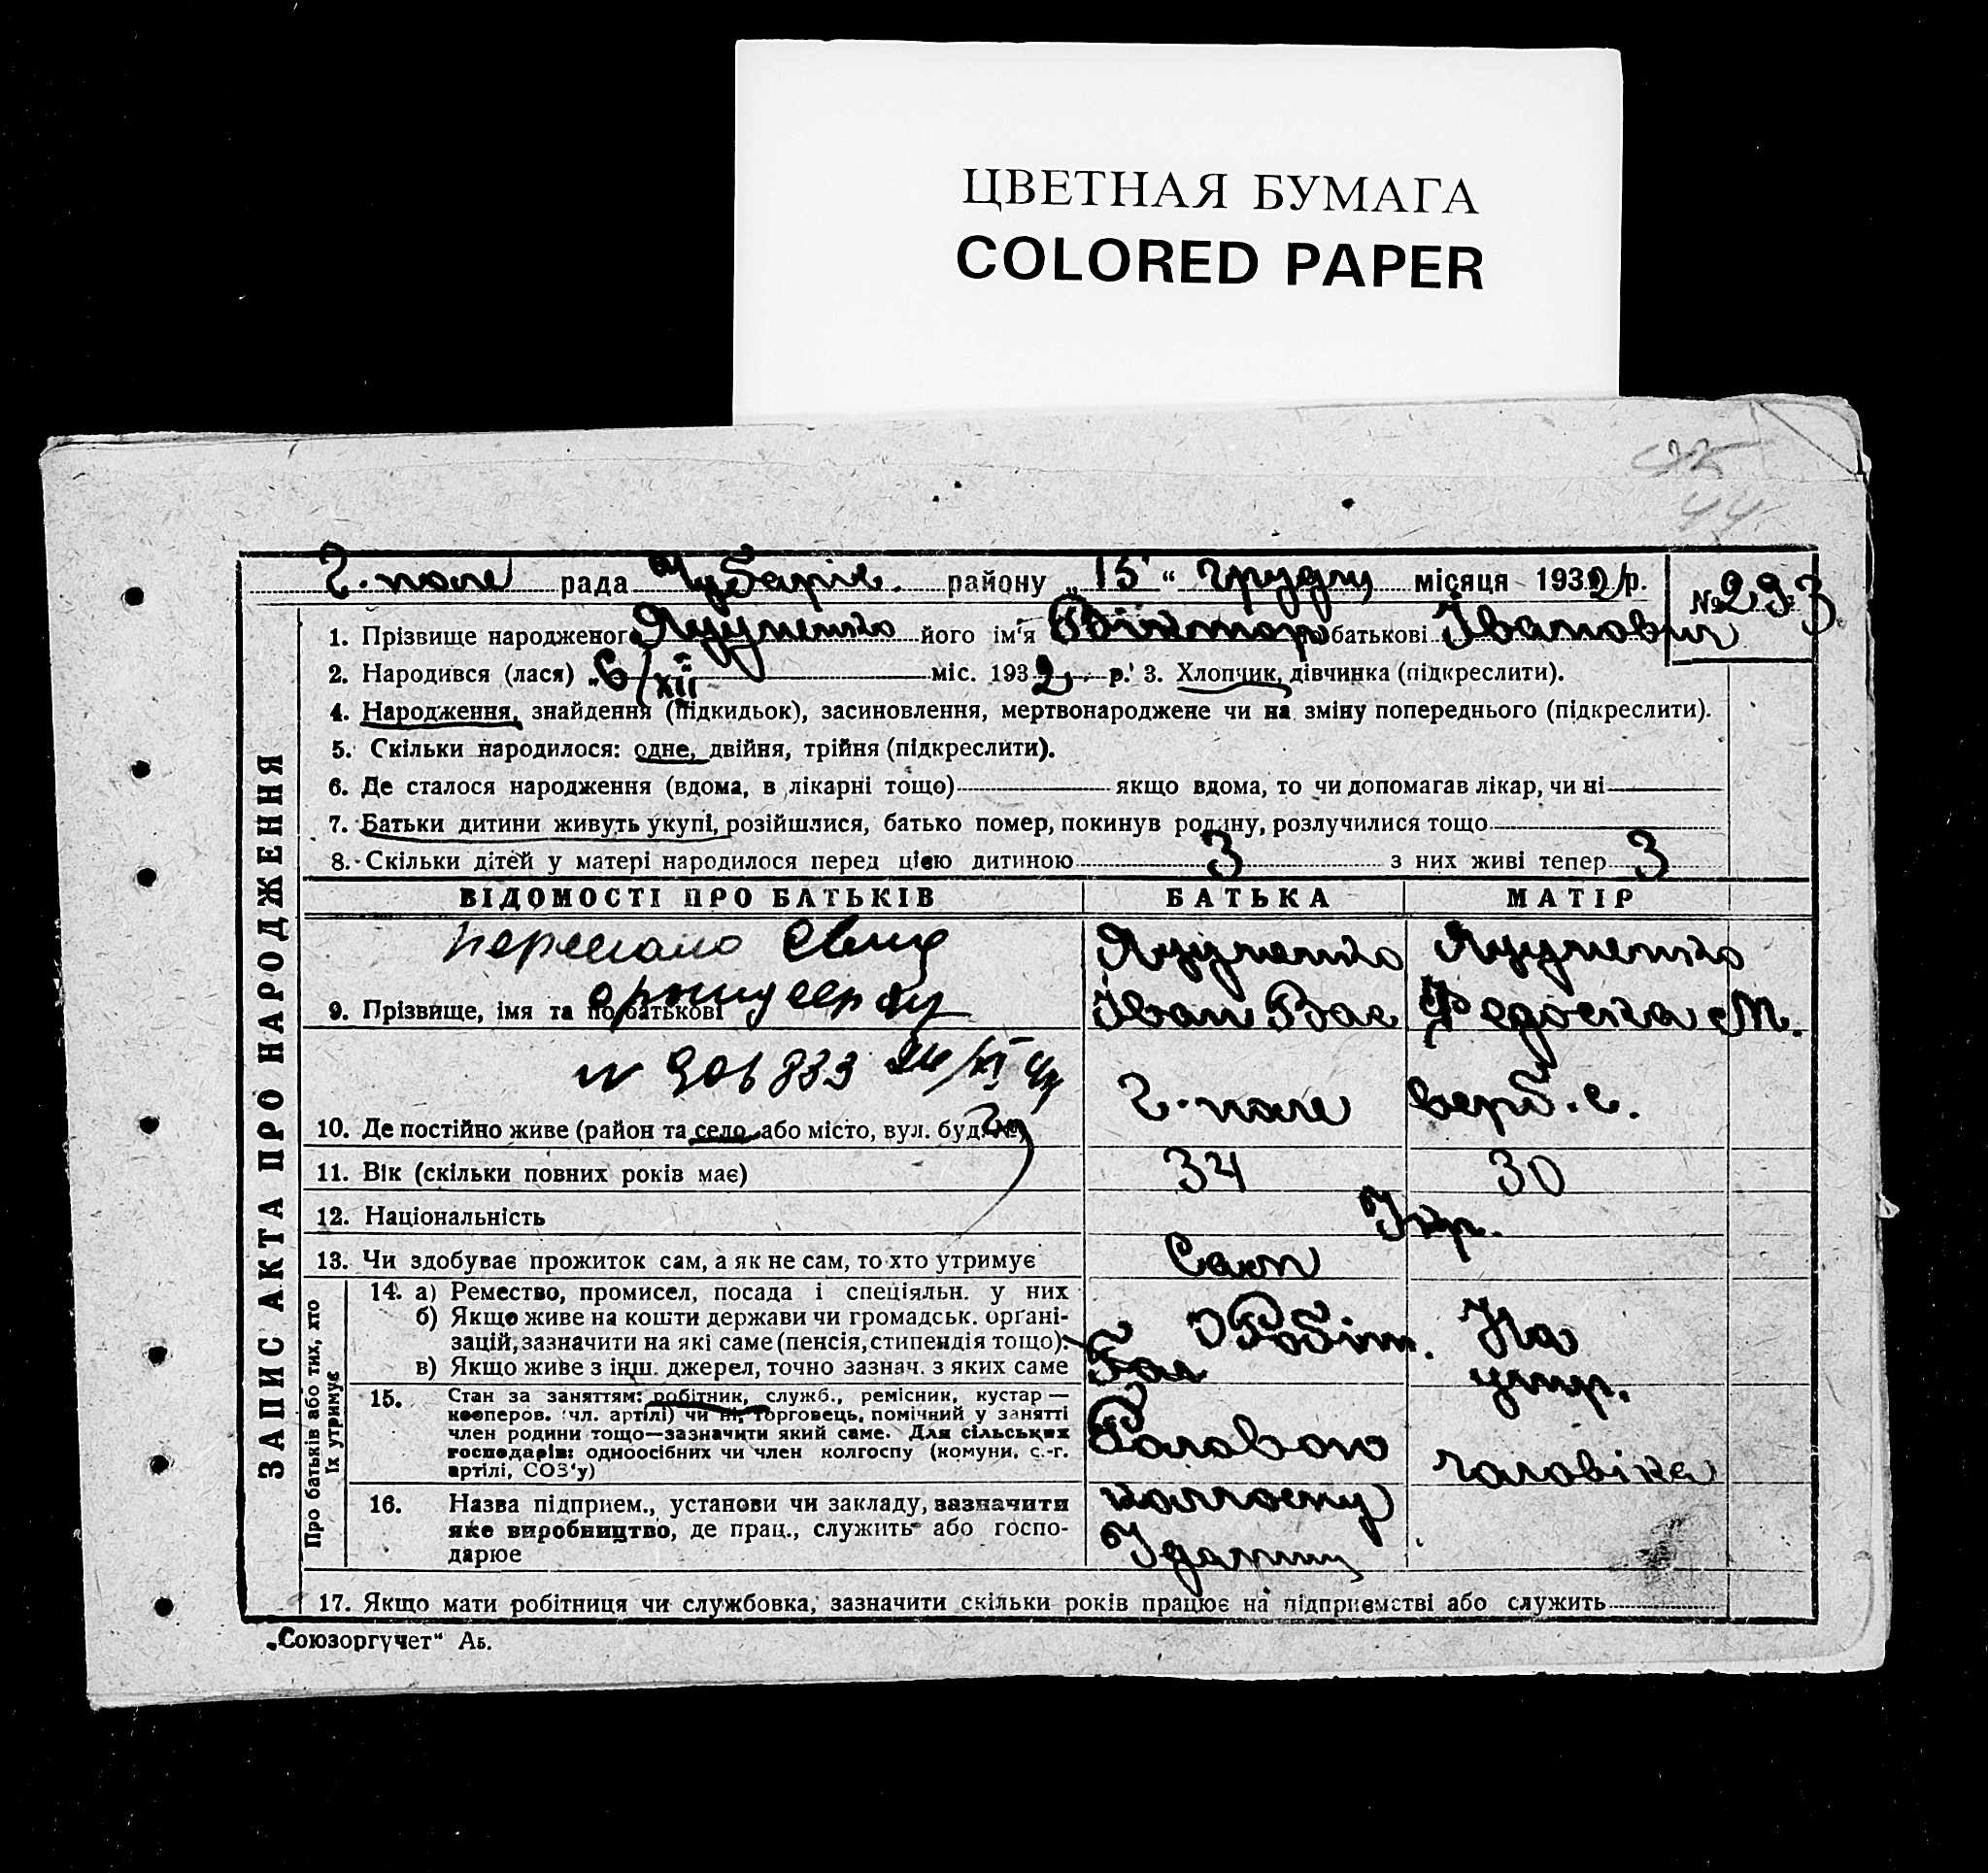 ЦВЕТНАЯ БУМАГА
COLORED PAPER
44
Г. поле рада Чубарів. району „15“ грудня місяця 1932 р. № 293
1. Прізвище народженого Яцуненко його ім'я Віктор по батькові Іванович
2. Народився (лася) „6/XII міс. 1932 р. 3. Хлопчик, дівчинка (підкреслити).
4. Народження, знайдення (підкидьок), засиновлення, мертвонароджене чи на зміну попереднього (підкреслити).
5. Скільки народилося: одне, двійня, трійня (підкреслити).
6. Де сталося народження (вдома, в лікарні тощо) якщо вдома, то чи допомагав лікар, чи ні
7. Батьки дитини живуть укупі, розійшлися, батько помер, покинув родину, розлучилися тощо
8. Скільки дітей у матері народилося перед цією дитиною 3 з них живі тепер 3
ЗАПИС АКТА ПРО НАРОДЖЕННЯ
ВІДОМОСТІ ПРО БАТЬКІВ БАТЬКА МАТІР
Яцуненко Яцуненко
9. Прізвище, імя та по батькові Іван Вас Федоска М.
№ 906833 24/XI
Г. поле верб. с.
10. Де постійно живе (район та село або місто, вул. буд. №)
11. Вік (скільки повних років має) 34 30
12. Національність Укр.
13. Чи здобуває прожиток сам, а як не сам, то хто утримує Сам
Про батьків або тих, хто їх утримує
14. а) Ремество, промисел, посада і спеціяльн. у них
б) Якщо живе на кошти держави чи громадськ. органі-
зацій, зазначити на які саме (пенсія, стипендія тощо). Робітн. На
в) Якщо живе з інш. джерел, точно зазнач. з яких саме утр.
15. Стан за заняттям: робітник, служб., ремісник, кустар —
кооперов. (чл. артілі) чи ні, торговець, помічний у занятті
член родини тощо—зазначити який саме. Для сільських
господарів: одноосібних чи член колгоспу (комуни, с.-г.
артілі, СОЗ'у)
Головою чоловіка
16. Назва підприєм., установи чи закладу, зазначити колгоспу
яке виробництво, де прац., служить або госпо-
дарює
17. Якщо мати робітниця чи службовка, зазначити скільки років працює на підприємстві або служить
„Союзоргучет“ Аб.